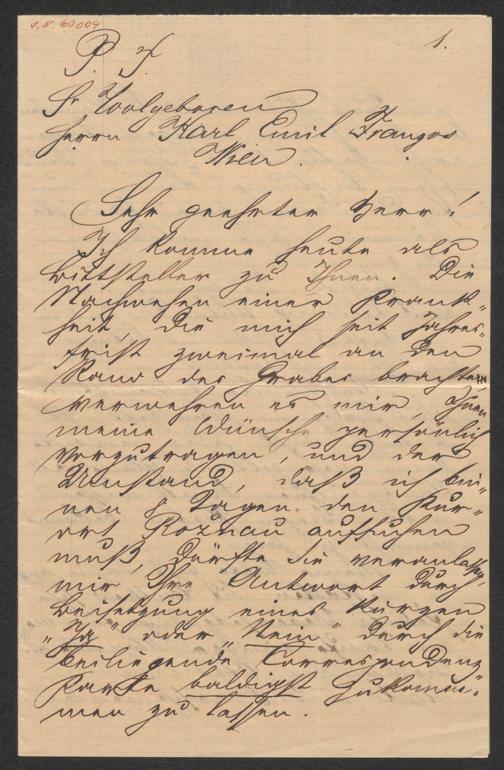 J. N. 60.004
1.
P. T.
Sr Woolgeboren
Herrn Karl Emil Franzos
Wien.
Sehr geehrter Herr!
Ich komme heute als
Bittsteller zu Ihnen. Die
Nachwehen einer Krank-
heit, die mich seit Jahres-
frist zweimal an den
Rand des Grabes brachte,
verwehren es mir, Ihnen
meine Wünsche persönlich
vorzutragen, und der
Umstand, daß ich bin-
nen 8 Tagen den Kur-
ort Rožnau aufsuchen
muß, dürfte Sie veranlassen,
mir Ihre Antwort durch
Beisetzung eines kurzen
"Ja" oder "Nein" durch die
beiliegende Correspondenz
Karte baldigst zukom-
men zu lassen.